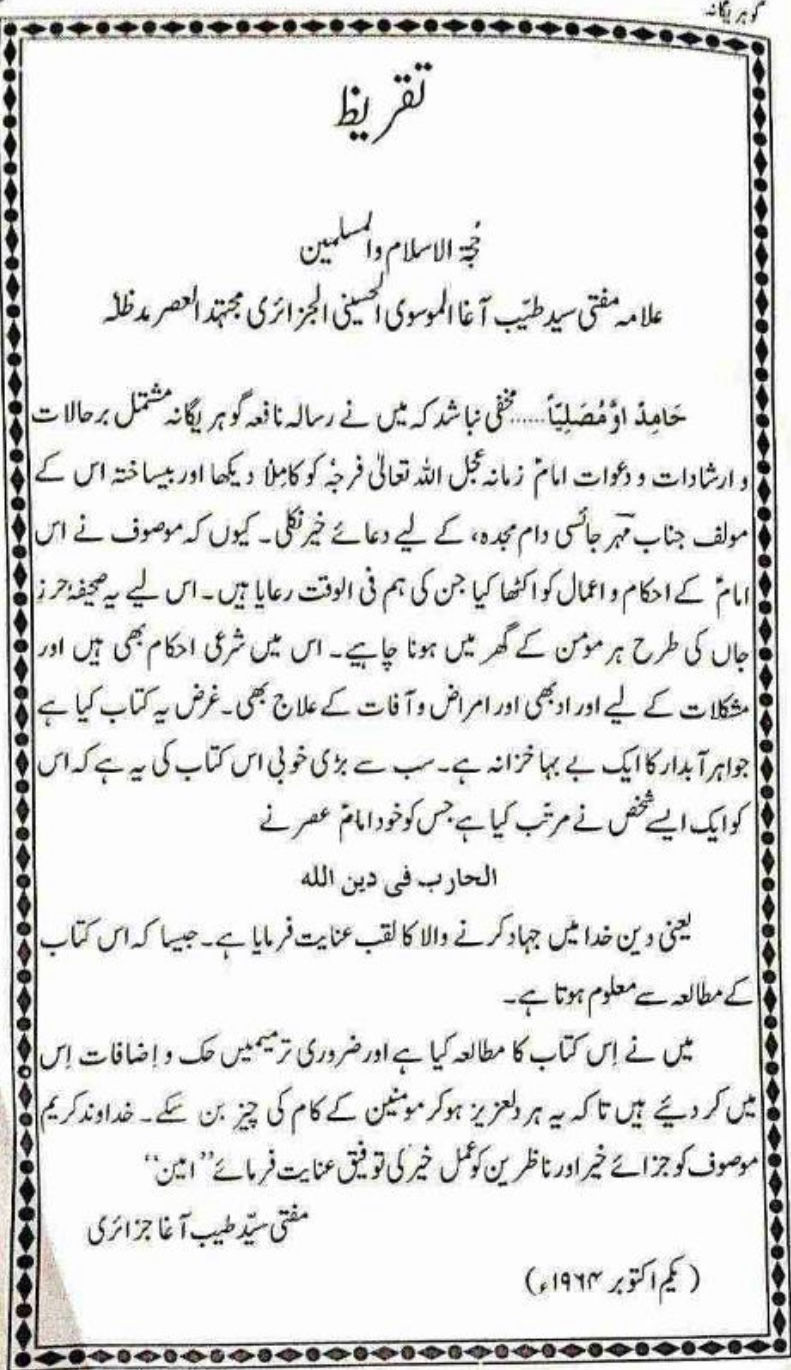 گوہر یگانہ
تقریظ
حُجۃ الاسلام والمسلمین
علامہ مفتی سید طیّب آغا الموسوی الحسینی الجزائری مجتہد العصر مدظلہٗ
حَامِدْ اوَّمُصَلِیّاً......مخفی نباشد کہ میں نے رسالہ نافعہ گوہر یگانہ مشتمل برحالات
و ارشادات و دعوات امامؑ زمانہ عجل اللہ تعالیٰ فرجہٗ کو کاملًا دیکھا اور بیساختہ اس کے
مولف جناب مہرؔ جائسی دام مجدہ، کے لیے دعائے خیر نکلی۔ کیوں کہ موصوف نے اس
امامؑ کے احکام و اعمال کو اکٹھا کیا جن کی ہم فی الوقت رعایا ہیں۔ اس لیے یہ صحیفۂ حرزِ
جاں کی طرح ہر مومن کے گھر میں ہونا چاہیے۔ اس میں شرعی احکام بھی ہیں اور
مشکلات کے لیے اوراد بھی اور امراض و آفات کے علاج بھی۔ غرض یہ کتاب کیا ہے
جواہر آبدار کا ایک بے بہا خزانہ ہے۔ سب سے بڑی خوبی اس کتاب کی یہ ہے کہ اس
کو ایک ایسے شخص نے مرتب کیا ہے جس کو خود امامؑ عصر نے
الحارب فی دین اللہ
یعنی دین خدا میں جہاد کرنے والا کا لقب عنایت فرمایا ہے۔ جیسا کہ اس کتاب
کے مطالعہ سے معلوم ہوتا ہے۔
میں نے اِس کتاب کا مطالعہ کیا ہے اور ضروری ترمیمیں حک و اِضافات اِس
میں کر دیئے ہیں تا کہ یہ ہر دلعزیز ہوکر مومنین کے کام کی چیز بن سکے۔ خداوند کریم
موصوف کو جزائے خیر اور ناظرین کو عمل خیر کی توفیق عنایت فرمائے ”امین“
مفتی سیّد طیب آغا جزائری
(یکم اکتوبر ۱۹۶۴ء)